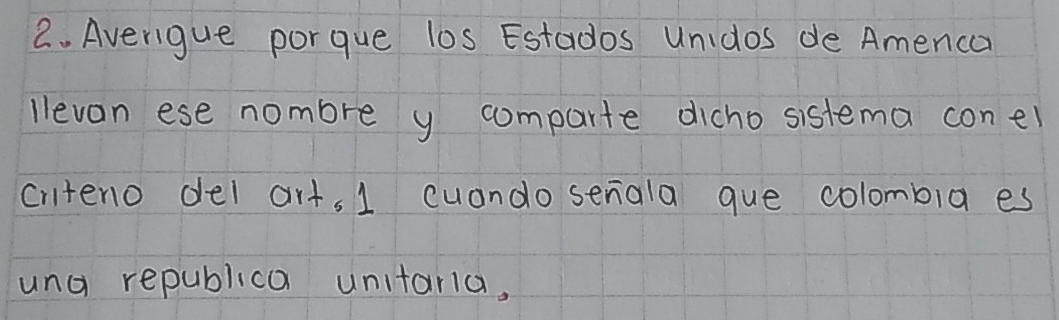 2. Averigue por que los Estados Unidos de America
llevan ese nombre y comparte dicho sistema con el
criterio del art. 1 cuando señala que colombia es
una republica unitaria.